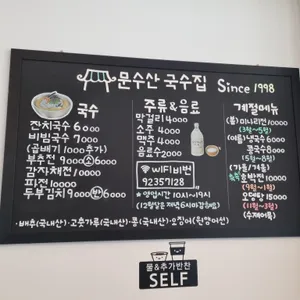 문수산 국수집 Since 1998
국수
잔치국수 6000
비빔국수 7000
(곱배기 1000추가)
부추전 9000 소 6000
감자채전 10000
파전 10000
두부김치 9000 반 6000
주류&음료
막걸리 4000
소주 4000
맥주 4000
음료수 2000
WiFi비번
92357128
*영업시간 10시~19시
(12월말은 저녁6시마감해요)
계절메뉴
(봄) 미나리전 11000
(3월~5월)
(여름) 냉국수 6000
콩국수 8000
(5월~8월)
(가을/겨울)
호박전 11000
(9월~1월)
오뎅탕 15000
(11월~3월)
(수제어묵)
·배추(국내산)·고춧가루(국내산)·콩(국내산)·오징어(원양어선)
물&추가반찬
SELF